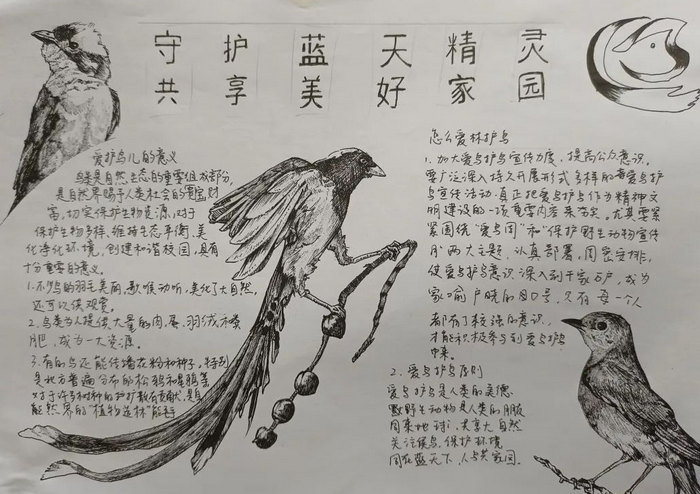 守护蓝天精灵
共享美好家园
爱护鸟儿的意义
鸟类是自然生态的重要组成部分,
是自然界赐予人类社会的宝贵财
富,切实保护生物资源,对于
保护生物多样,维持生态平衡,美
化净化环境,创建和谐校园,具有
十分重要的意义。
1.不少鸟的羽毛美丽,歌喉动听,美化了大自然,
还可以供观赏。
2.鸟类为人提供大量的肉、蛋、羽绒和
成为一大资源。
3.有的鸟还能传播花粉和种子。特别
是北方普遍分布的松鸦和星鸦等
对于许多树种的扩散有贡献,是自
然界的“植物造林”能手
怎么爱林护鸟
1.加大爱鸟护鸟宣传力度,提高公众意识。
要广泛深入持久开展形式多样的爱鸟护
鸟宣传活动,真正把爱鸟护鸟作为精神文
明建设的一项重要内容来落实,尤其要紧
紧围绕“爱鸟周”和“保护野生动物宣传
月”两大主题,认真部署,周密安排,
使爱鸟护鸟意识深入到千家万户,成为
家喻户晓的口号,只有每一个人
都有了较强的意识,
才能积极参与到爱鸟护鸟
中来。
2.爱鸟护鸟原则
爱鸟护鸟是人类的美德
野生动物是人类的朋友
同来地球,共享大自然
关注候鸟,保护环境
同在蓝天下,人鸟共家园。